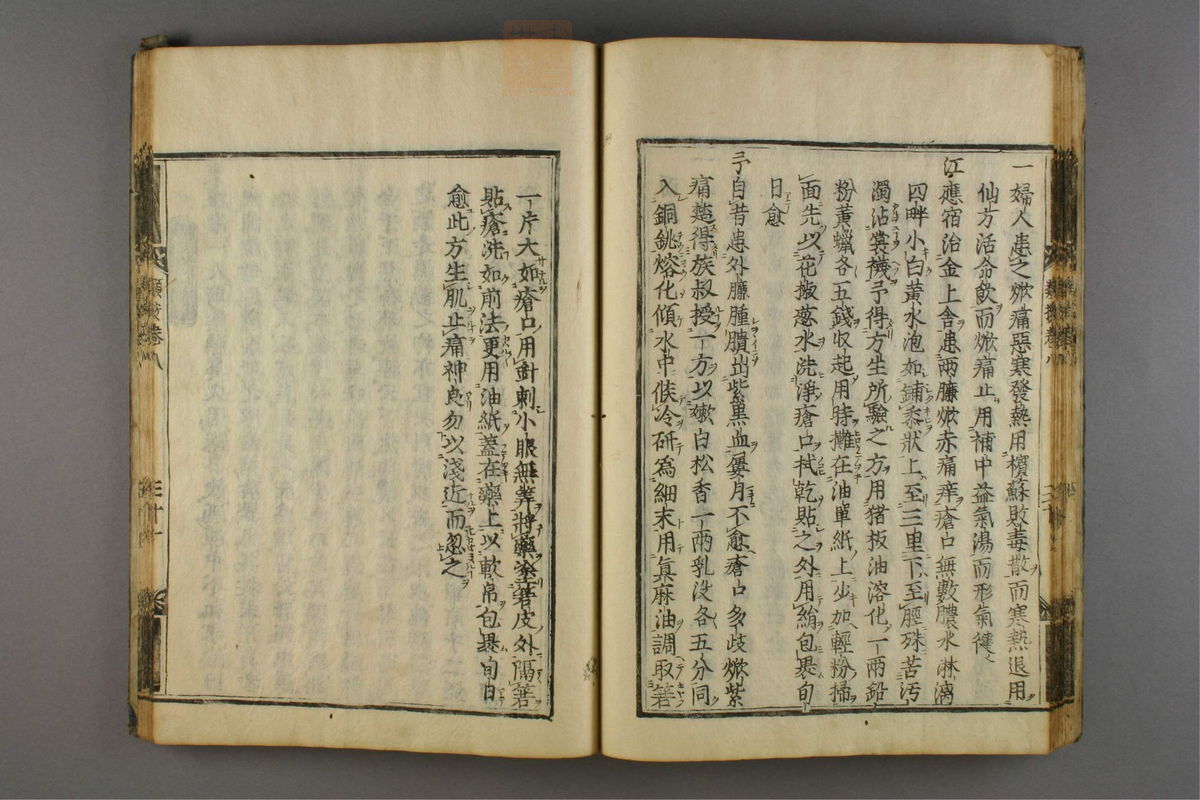 一婦人患之焮痛惡寒發熱用檳蘇敗毒散而寒熱退用
仙方活命飲而焮痛止用補中益氣湯而形氣健
江應宿治金上舍患兩臁焮赤痛痒瘡口無數膿水淋漓
四畔小白黃水泡如鋪黍狀上至三里下至脛殊苦汚
濁沾裳襪予得方生所驗之方用猪板油溶化一兩鉛
粉黃蠟各五錢收起用時攤在油單紙上少加輕粉掃
面先以花椒葱水洗淨瘡口拭乾貼之外用絹包裹旬
日愈
予自昔患外臁腫膭出紫黒血屢月不愈瘡口多歧焮紫
痛楚得族叔授一方以嫩白松香一兩乳没各五分同
入銅銚熔化傾水中候冷研爲細末用真麻油調取箬
一片大如瘡口用針刺小眼無算將藥塗箬皮外隔箬
貼瘡洗如前法更用油紙蓋在藥上以軟帛包裹旬日
愈此方生肌止痛神良勿以淺近而忽之
類案卷八
三十